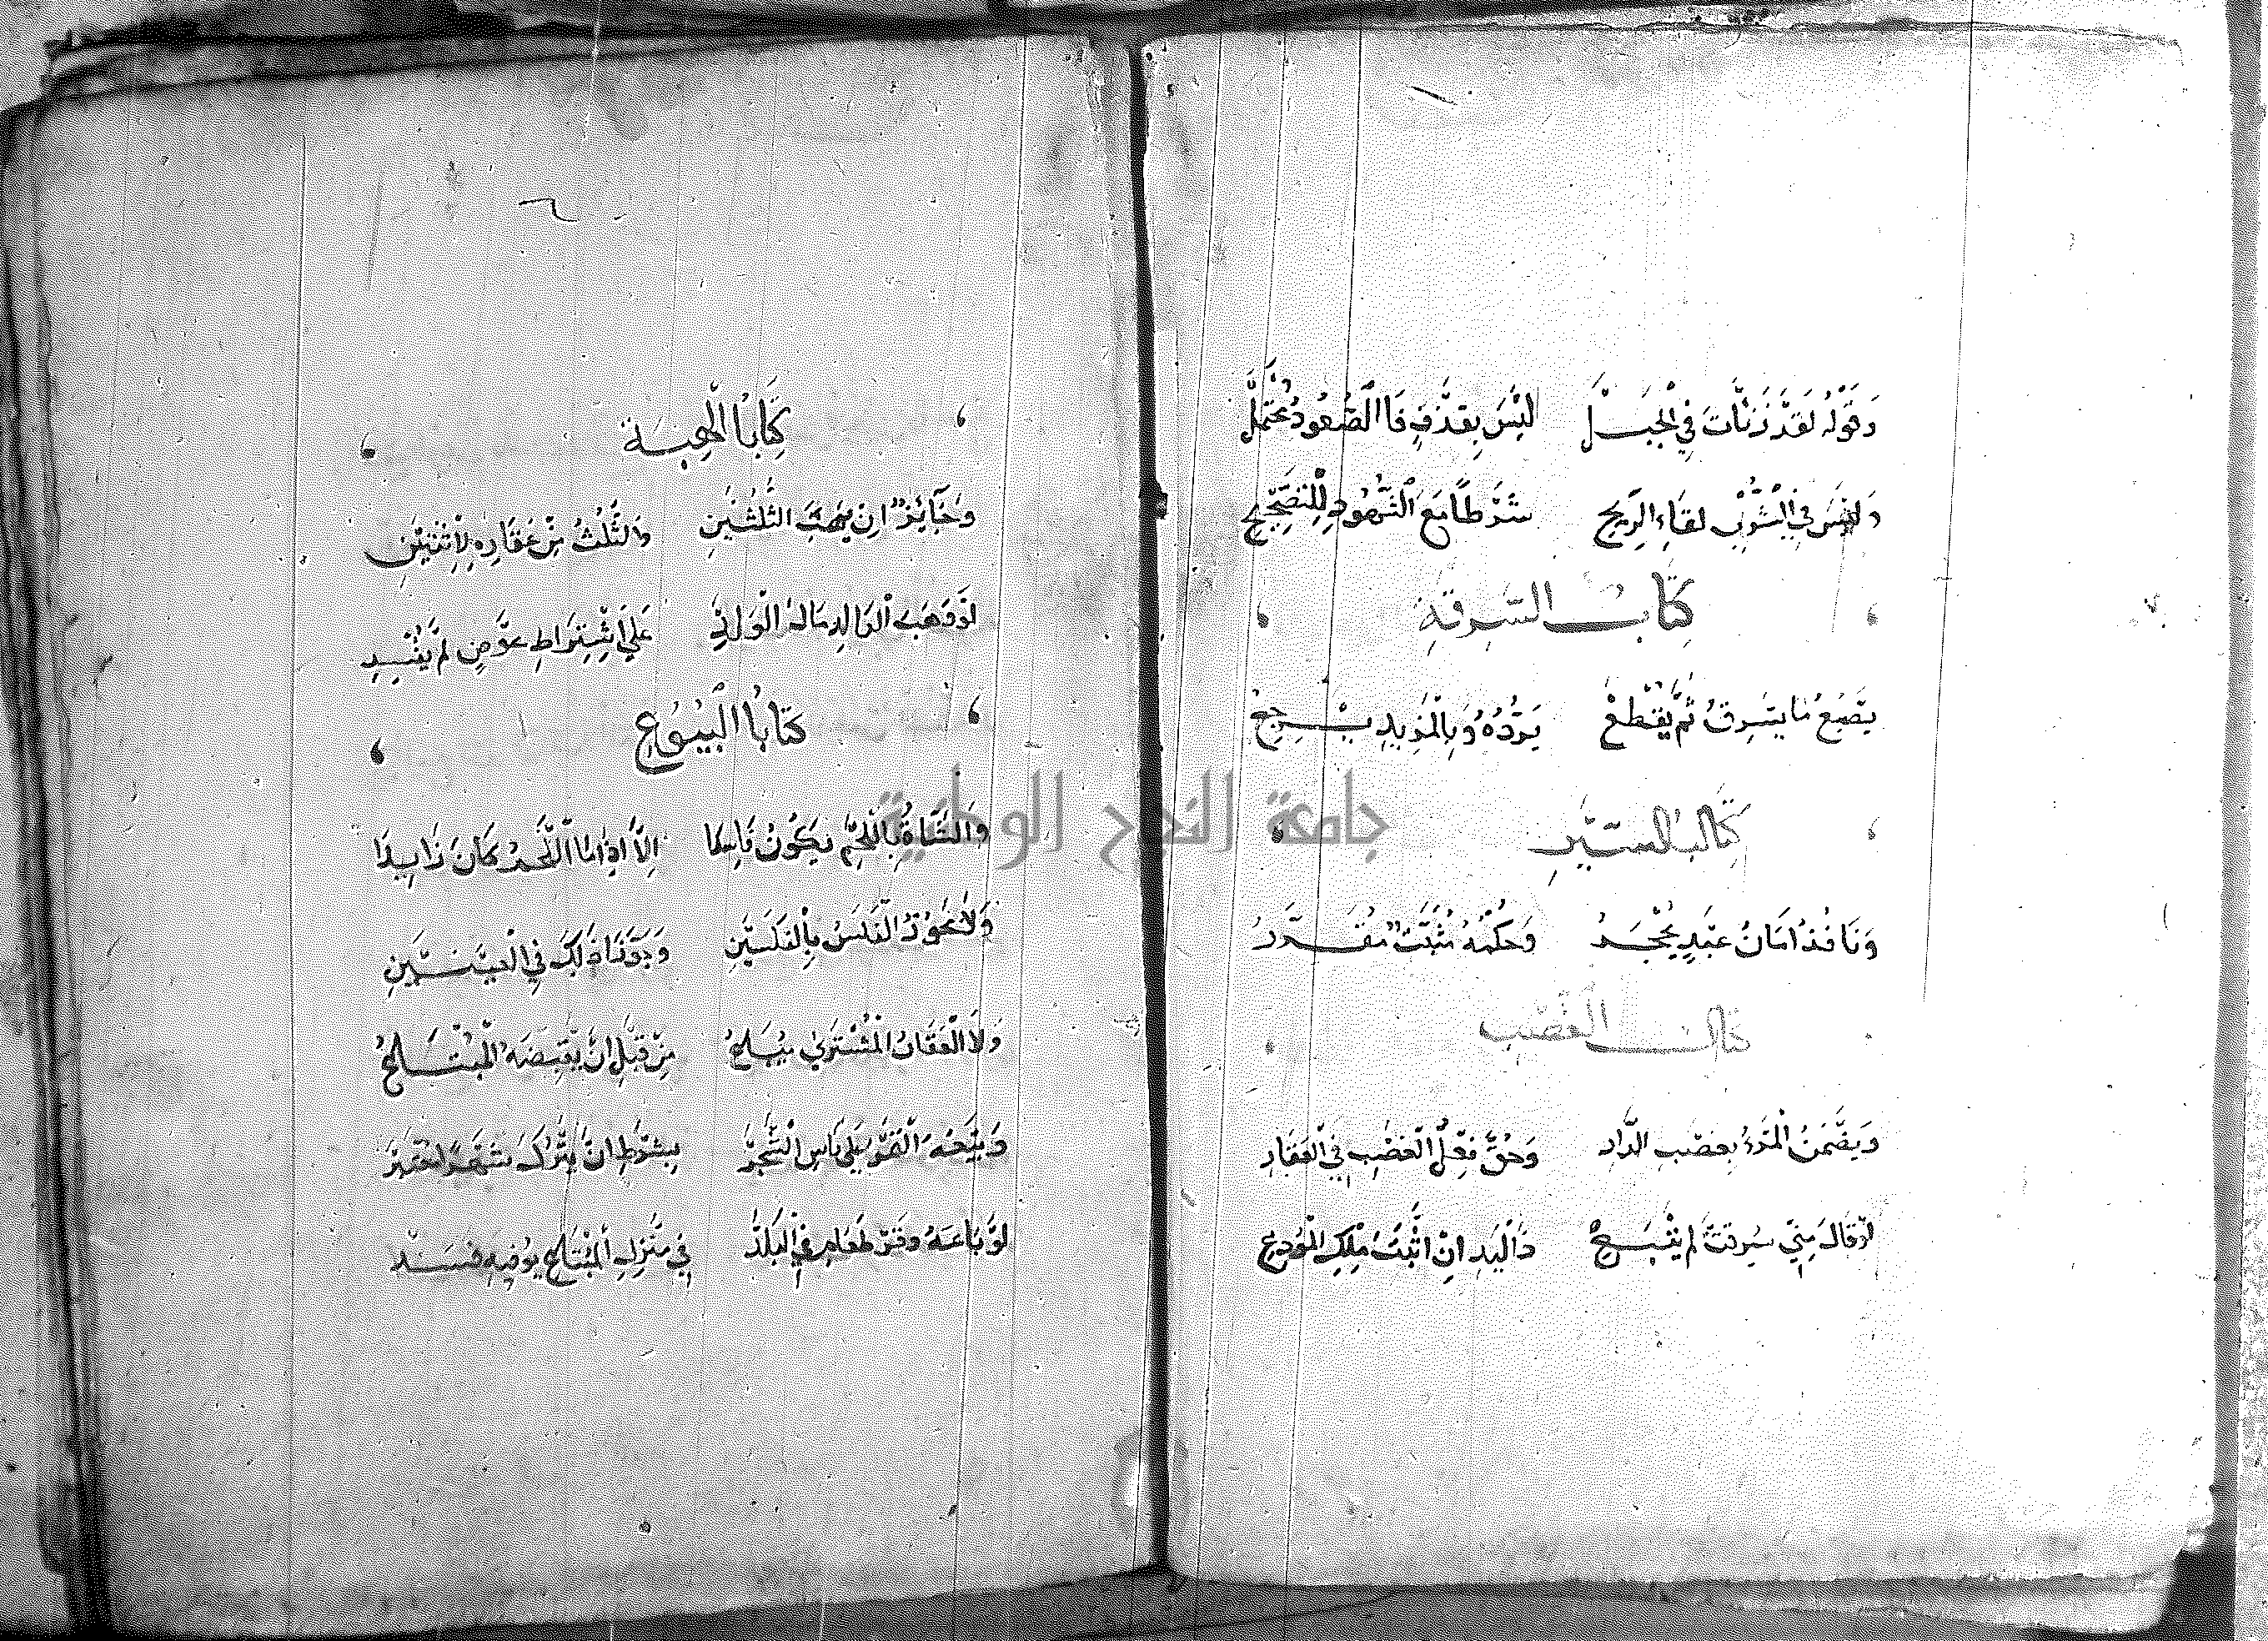 وَقَوْلُهُ لَقَدْ زَنَأْتَ فِي الْجَبَلْ لَيْسَ بِقَذْفٍ فَاالصُّعُودُ مُحْتَمَلْ
وَلَيْسَ فِي الشُّرْبِ لِقَاءِ الرِّيحِ شَرْطًا مَعَ الشُّهُودِ لِلتَّصْحِيحِ
كِتَابُ السَّرِقَةِ
يَصْبَغُ مَا يَسْرِقُ ثُمَّ يُقْطَعْ يَرُدُّهُ وَبِالْمَزِيدِ يَرْجِعْ
كِتَابُ السِّيَرِ
وَنَافِذٌ امَانُ عَبْدٍ يُحْجَرُ وَحُكْمُهُ مُثَبَّتٌ مُقَرَّرُ
كتاب الغصب
وَيَضْمَنُ الْمَرْءُ بِغَصْبِ الدَّارِ وَحُقَّ فِعْلُ الْغَصْبِ فِي الْعَقَارِ
اذ قَالَ مِنِّي سُرِقَتْ لَمْ وَالْيَدِ انْ اثْبَتَ مِلْكَ الْمُودِعِ
كِتَابُ الْهِبَةِ
وَجَايِزٌ انْ يَهَبَ الثُّلْثَيْنِ وَالثُّلْثُ مِنْ عَقَارِهِ لِاثْنَيْنِ
لَوْ وَهَبَ الْوَالِدِ مَالَ الْوَلَدِ عَلَى اشْتِرَاطِ عِوَضٍ لَمْ يُفِدِ
كِتَابُ الْبُيُوعِ
وَالشَّاةُ بِاللَّحْمِ يَكُونُ فَاسِدَا إِلَّا اذَا مَا اللَّحْمُ كَانَ زَايِدَا
وَلَا يَجُوزُ الْفَلْسُ بِالْفَلْسَيْنِ وَجَوَّزَا ذَلِكَ فِي الْعَيْنَيْنِ
وَلَا الْعَقَارُ الْمُشْتَرَى يُبَاعُ مِنْ قَبْلِ انْ يَقْبِضَهُ الْمُبْتَاعُ
وَبَيْعُهُ الثَّمَرَ عَلَى رَاسِ الشَّجَرْ بِشَرْطِ انْ يُتْرَكَ شَهْرًا
لَوْ بَاعَهُ وِقْرَ طَعَامٍ فِي الْبَلَدْ فِي مَنْزِلِ الْمُبْتَاعِ يُوفِيهِ فَسَدْ
جامعة النجاح الوطنية